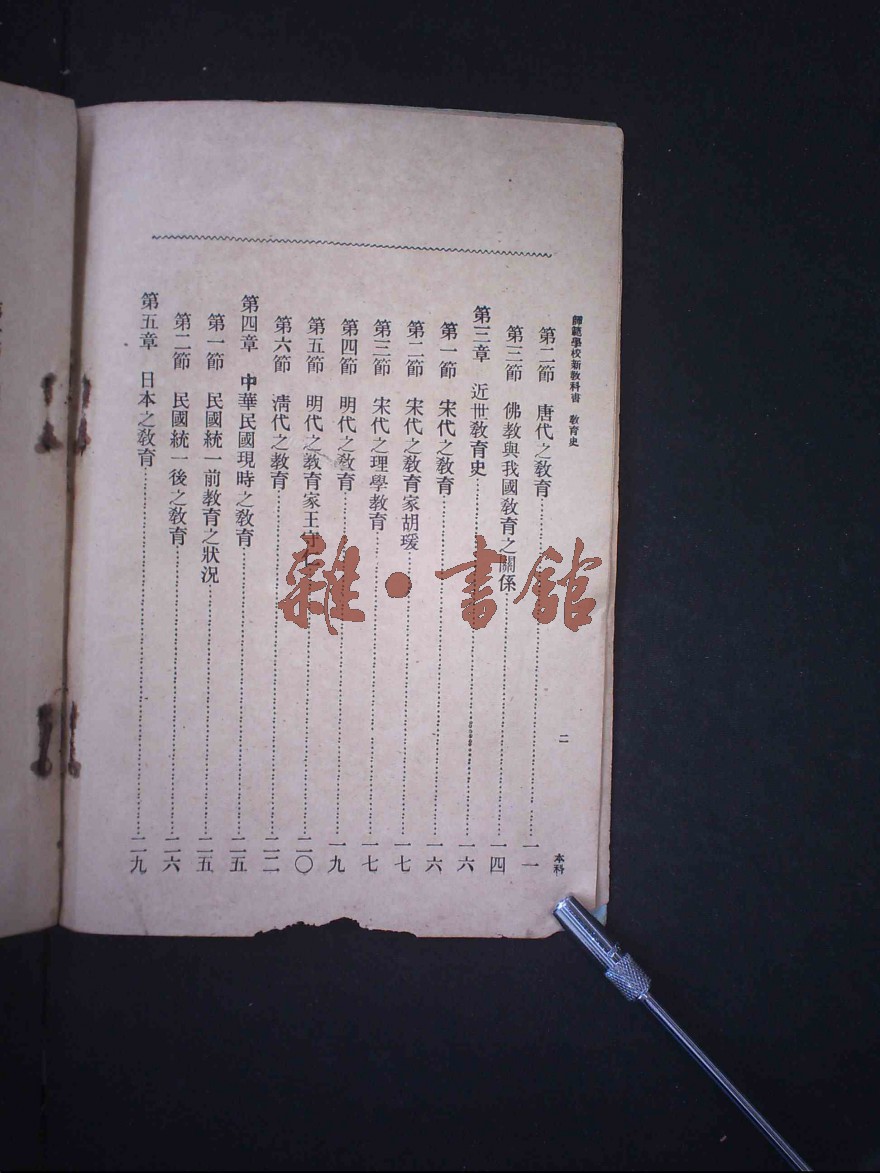 師範學校新教科書 教育史
二
本科
第二節 唐代之教育…………一一
第三節 佛教與我國教育之關係…………一四
第三章 近世教育史…………一六
第一節 宋代之教育…………一六
第二節 宋代之教育家胡瑗…………一七
第三節 宋代之理學教育…………一七
第四節 明代之教育…………一九
第五節 明代之教育家王守仁…………二〇
第六節 清代之教育…………二二
第四章 中華民國現時之教育…………二五
第一節 民國統一前教育之狀況…………二五
第二節 民國統一後之教育…………二六
第五章 日本之教育…………二九
雜·書館